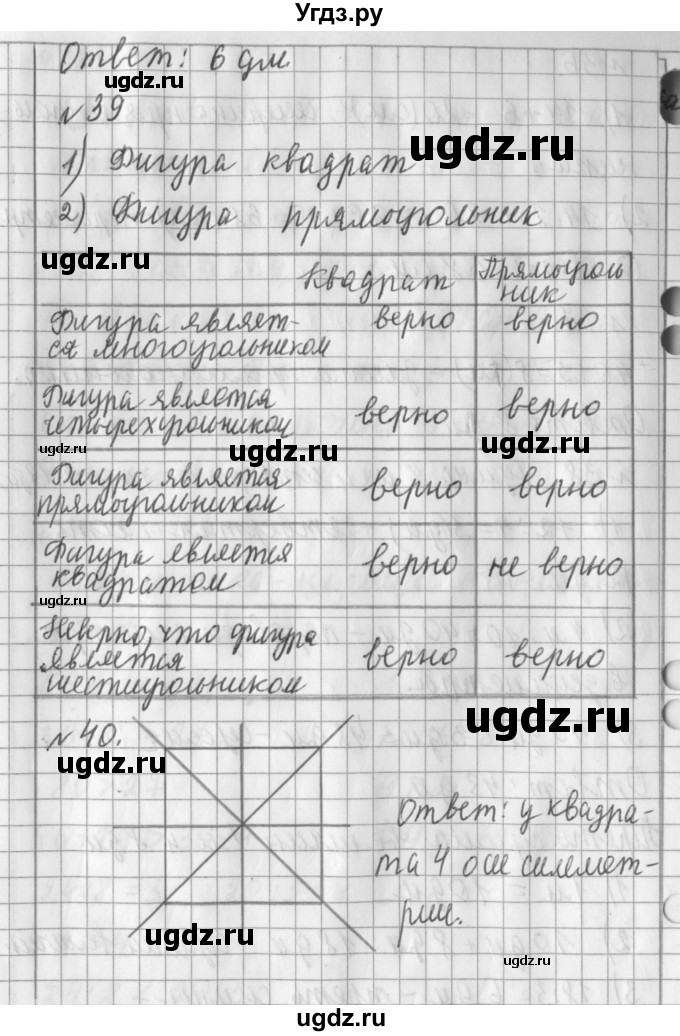 Угдз.ру
Ответ: 6 дм
ugdz.ru
№39
ugdz.ru
1) Фигура квадрат
2) Фигура прямоугольник
ugdz.ru
Квадрат Прямоуголь
ник
Фигура являет- верно верно
ся многоугольником
Фигура является верно верно
четырехугольником
ugdz.ru ugdz.ru ugdz.ru
Фигура является верно верно
прямоугольником
Фигура является верно не верно
квадратом
ugdz.ru
Неверно, что фигура
является верно верно
шестиугольником
ugdz.ru
№40.
ugdz.ru
Ответ: у квадра-
та 4 оси симмет-
рии.
ugdz.ru
ugdz.ru
ugdz.ru